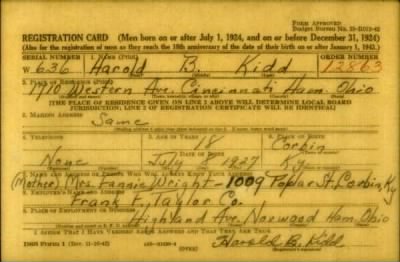 FORM APPROVED
REGISTRATION CARD (Men born on or after July 1, 1924, and on or before December 31, 1924)
(Also for the registration of men as they reach the 18th anniversary of the date of their birth on or after January 1, 1943.)
SERIAL NUMBER 1. NAME (Print) ORDER NUMBER
W636 Harold B. Kidd 12863
2. PLACE OF RESIDENCE (Print)
1710 Western Ave. Cincinnati Ham. Ohio
[THE PLACE OF RESIDENCE GIVEN ON LINE 2 ABOVE WILL DETERMINE LOCAL BOARD
JURISDICTION; LINE 2 OF REGISTRATION CERTIFICATE WILL BE IDENTICAL]
3. MAILING ADDRESS
Same
4. TELEPHONE 5. AGE IN YEARS 6. PLACE OF BIRTH
18 Corbin
None July 8 1927 Ky.
7. NAME AND ADDRESS OF PERSON WHO WILL ALWAYS KNOW YOUR ADDRESS
(Mother) Mrs. Fannie Wright - 1009 Poplar St. Corbin, Ky
8. EMPLOYER'S NAME AND ADDRESS
Frank F. Taylor Co.
9. PLACE OF EMPLOYMENT OR BUSINESS
Highland Ave. Norwood Ham. Ohio
I AFFIRM THAT I HAVE VERIFIED ABOVE ANSWERS AND THAT THEY ARE TRUE
DSS Form 1 (OVER) Harold B. Kidd